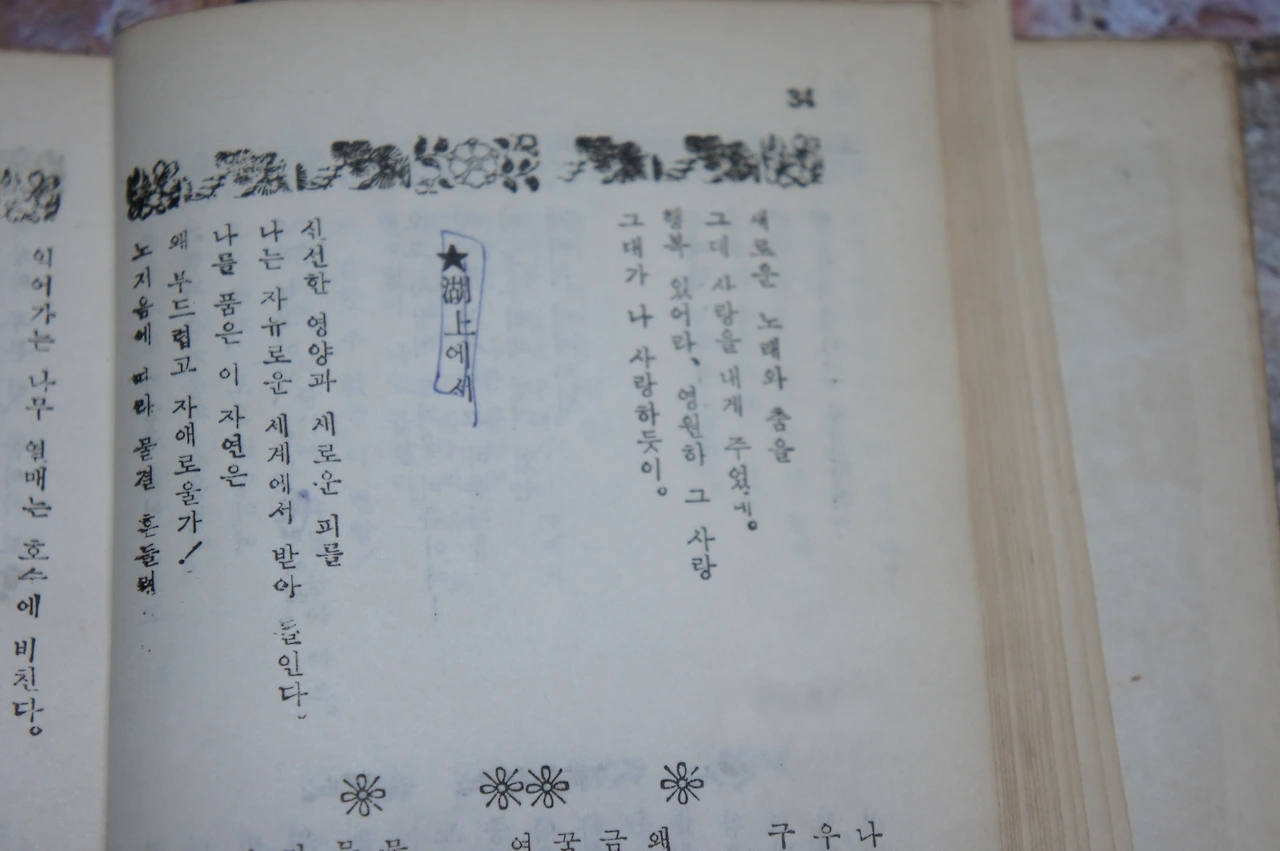 34
새로운 노래와 춤을
그데 사랑을 내게 주었네。
행복 있어라、영원하 그 사랑
그대가 나 사랑하듯이。
★湖上에서
신선한 영양과 새로운 피를
나는 자뉴로운 세계에서 받아 들인다.
나를 품은 이 자연은
왜 부드럽고 자애로울가!
노지음에 따라 물결 흔들려
익어가는 나무 열매는 호스에 비친다。
나
우
구
왜
금
꿈